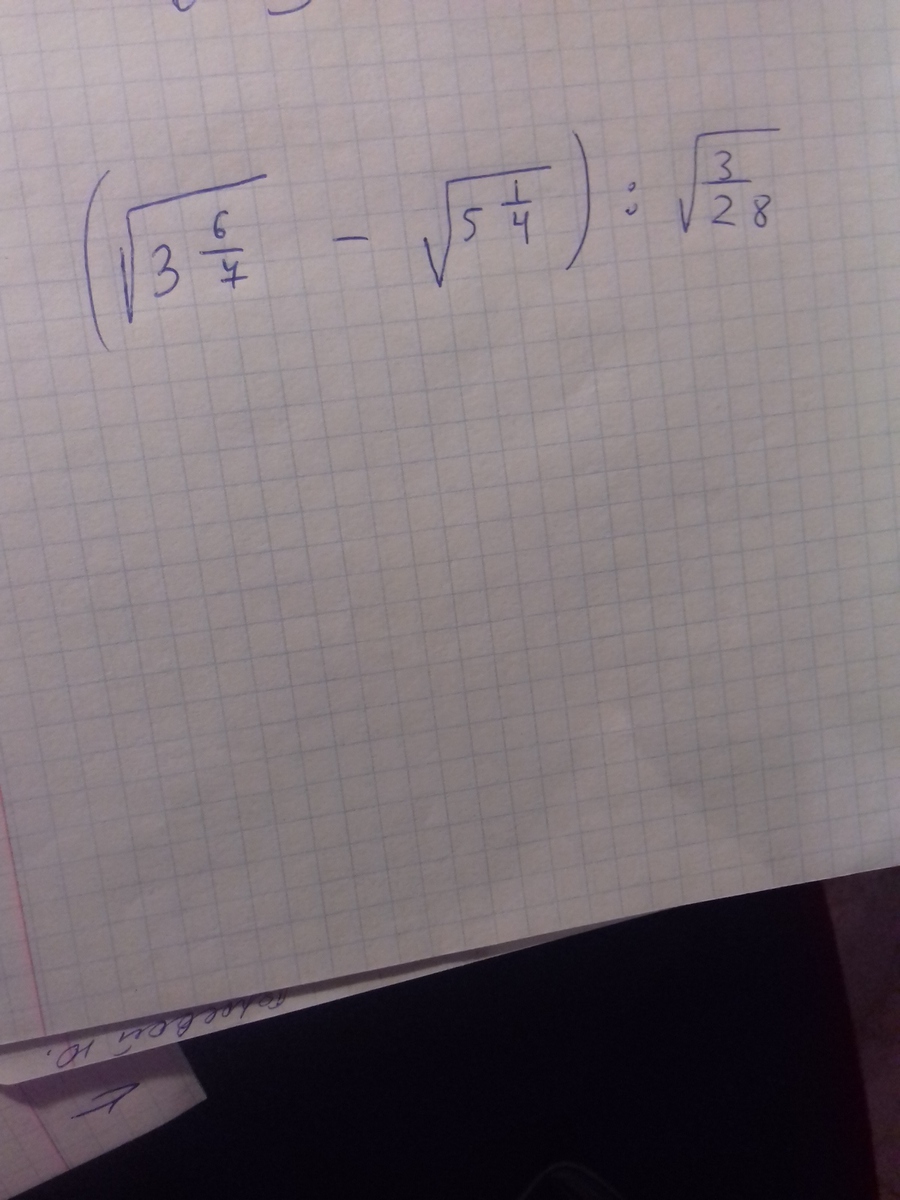 (√3 6/7 - √5 1/4) : √3/28